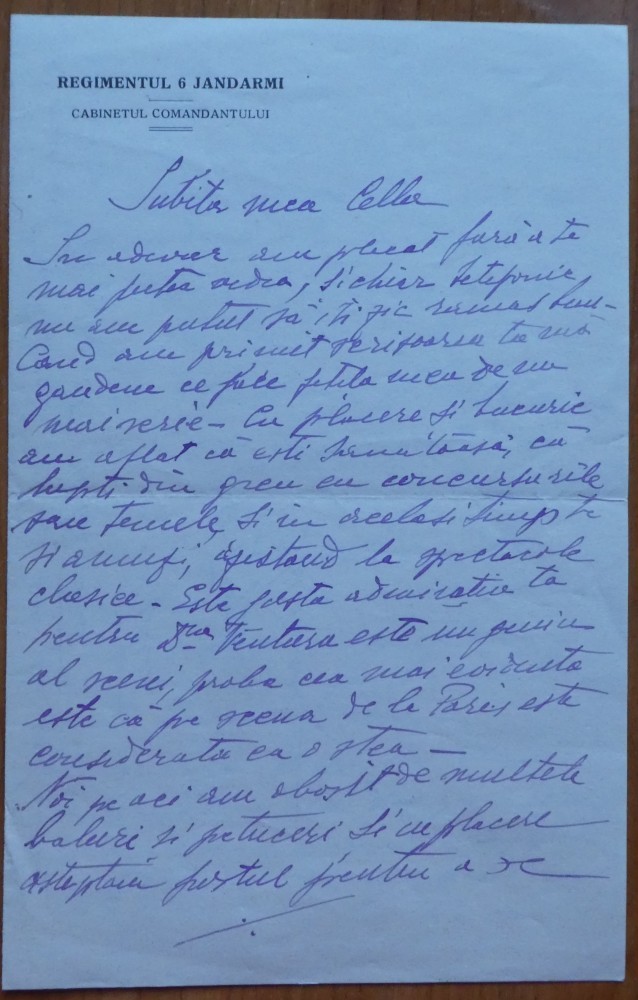 REGIMENTUL 6 JANDARMI
CABINETUL COMANDANTULUI
Iubita mea Cella
In adevar am plecat fară a te
mai putea vedea, si chiar telefonic
nu am putut să iti zic ramas bun -
Cand am primit scrisoarea ta mă
gandeam ce face fetita mea de nu
mai scrie - Cu placere si bucurie
am aflat că esti sanatoasă, că
lupti din greu cu concursurile
sau temele, si in acelasi timp te
si amuzi, asistand la spectacole
clasice - Este justa admiratia ta
pentru Dna Ventura este un geniu
al scenei, proba cea mai evidenta
este că pe scena de la Paris este
considerata ca o stea -
Noi, pe aci am obosit de multele
baluri si petreceri si cu placere
asteptam postul pentru a se